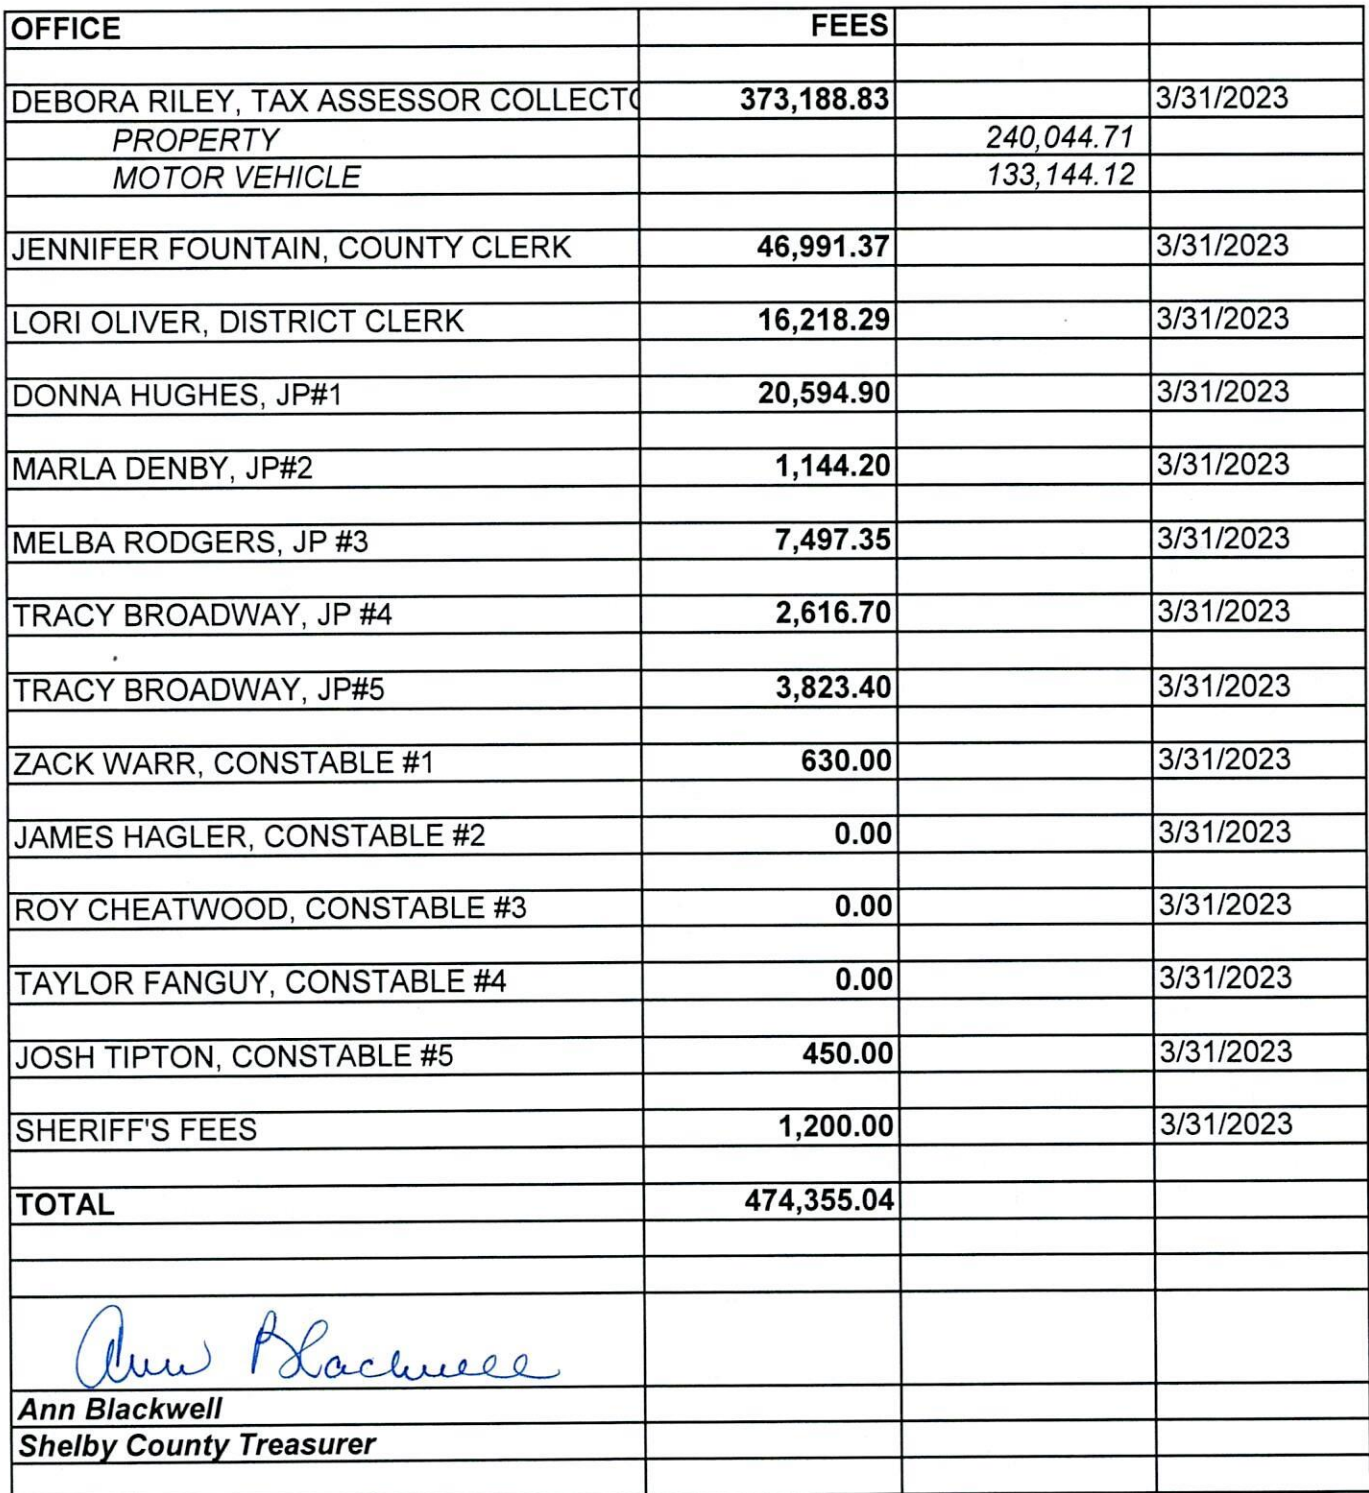 OFFICE FEES
DEBORA RILEY, TAX ASSESSOR COLLECTO 373,188.83 3/31/2023
PROPERTY 240,044.71
MOTOR VEHICLE 133,144.12
JENNIFER FOUNTAIN, COUNTY CLERK 46,991.37 3/31/2023
LORI OLIVER, DISTRICT CLERK 16,218.29 3/31/2023
DONNA HUGHES, JP#1 20,594.90 3/31/2023
MARLA DENBY, JP#2 1,144.20 3/31/2023
MELBA RODGERS, JP #3 7,497.35 3/31/2023
TRACY BROADWAY, JP #4 2,616.70 3/31/2023
TRACY BROADWAY, JP#5 3,823.40 3/31/2023
ZACK WARR, CONSTABLE #1 630.00 3/31/2023
JAMES HAGLER, CONSTABLE #2 0.00 3/31/2023
ROY CHEATWOOD, CONSTABLE #3 0.00 3/31/2023
TAYLOR FANGUY, CONSTABLE #4 0.00 3/31/2023
JOSH TIPTON, CONSTABLE #5 450.00 3/31/2023
SHERIFF'S FEES 1,200.00 3/31/2023
TOTAL 474,355.04
Ann Blackwell
Ann Blackwell
Shelby County Treasurer